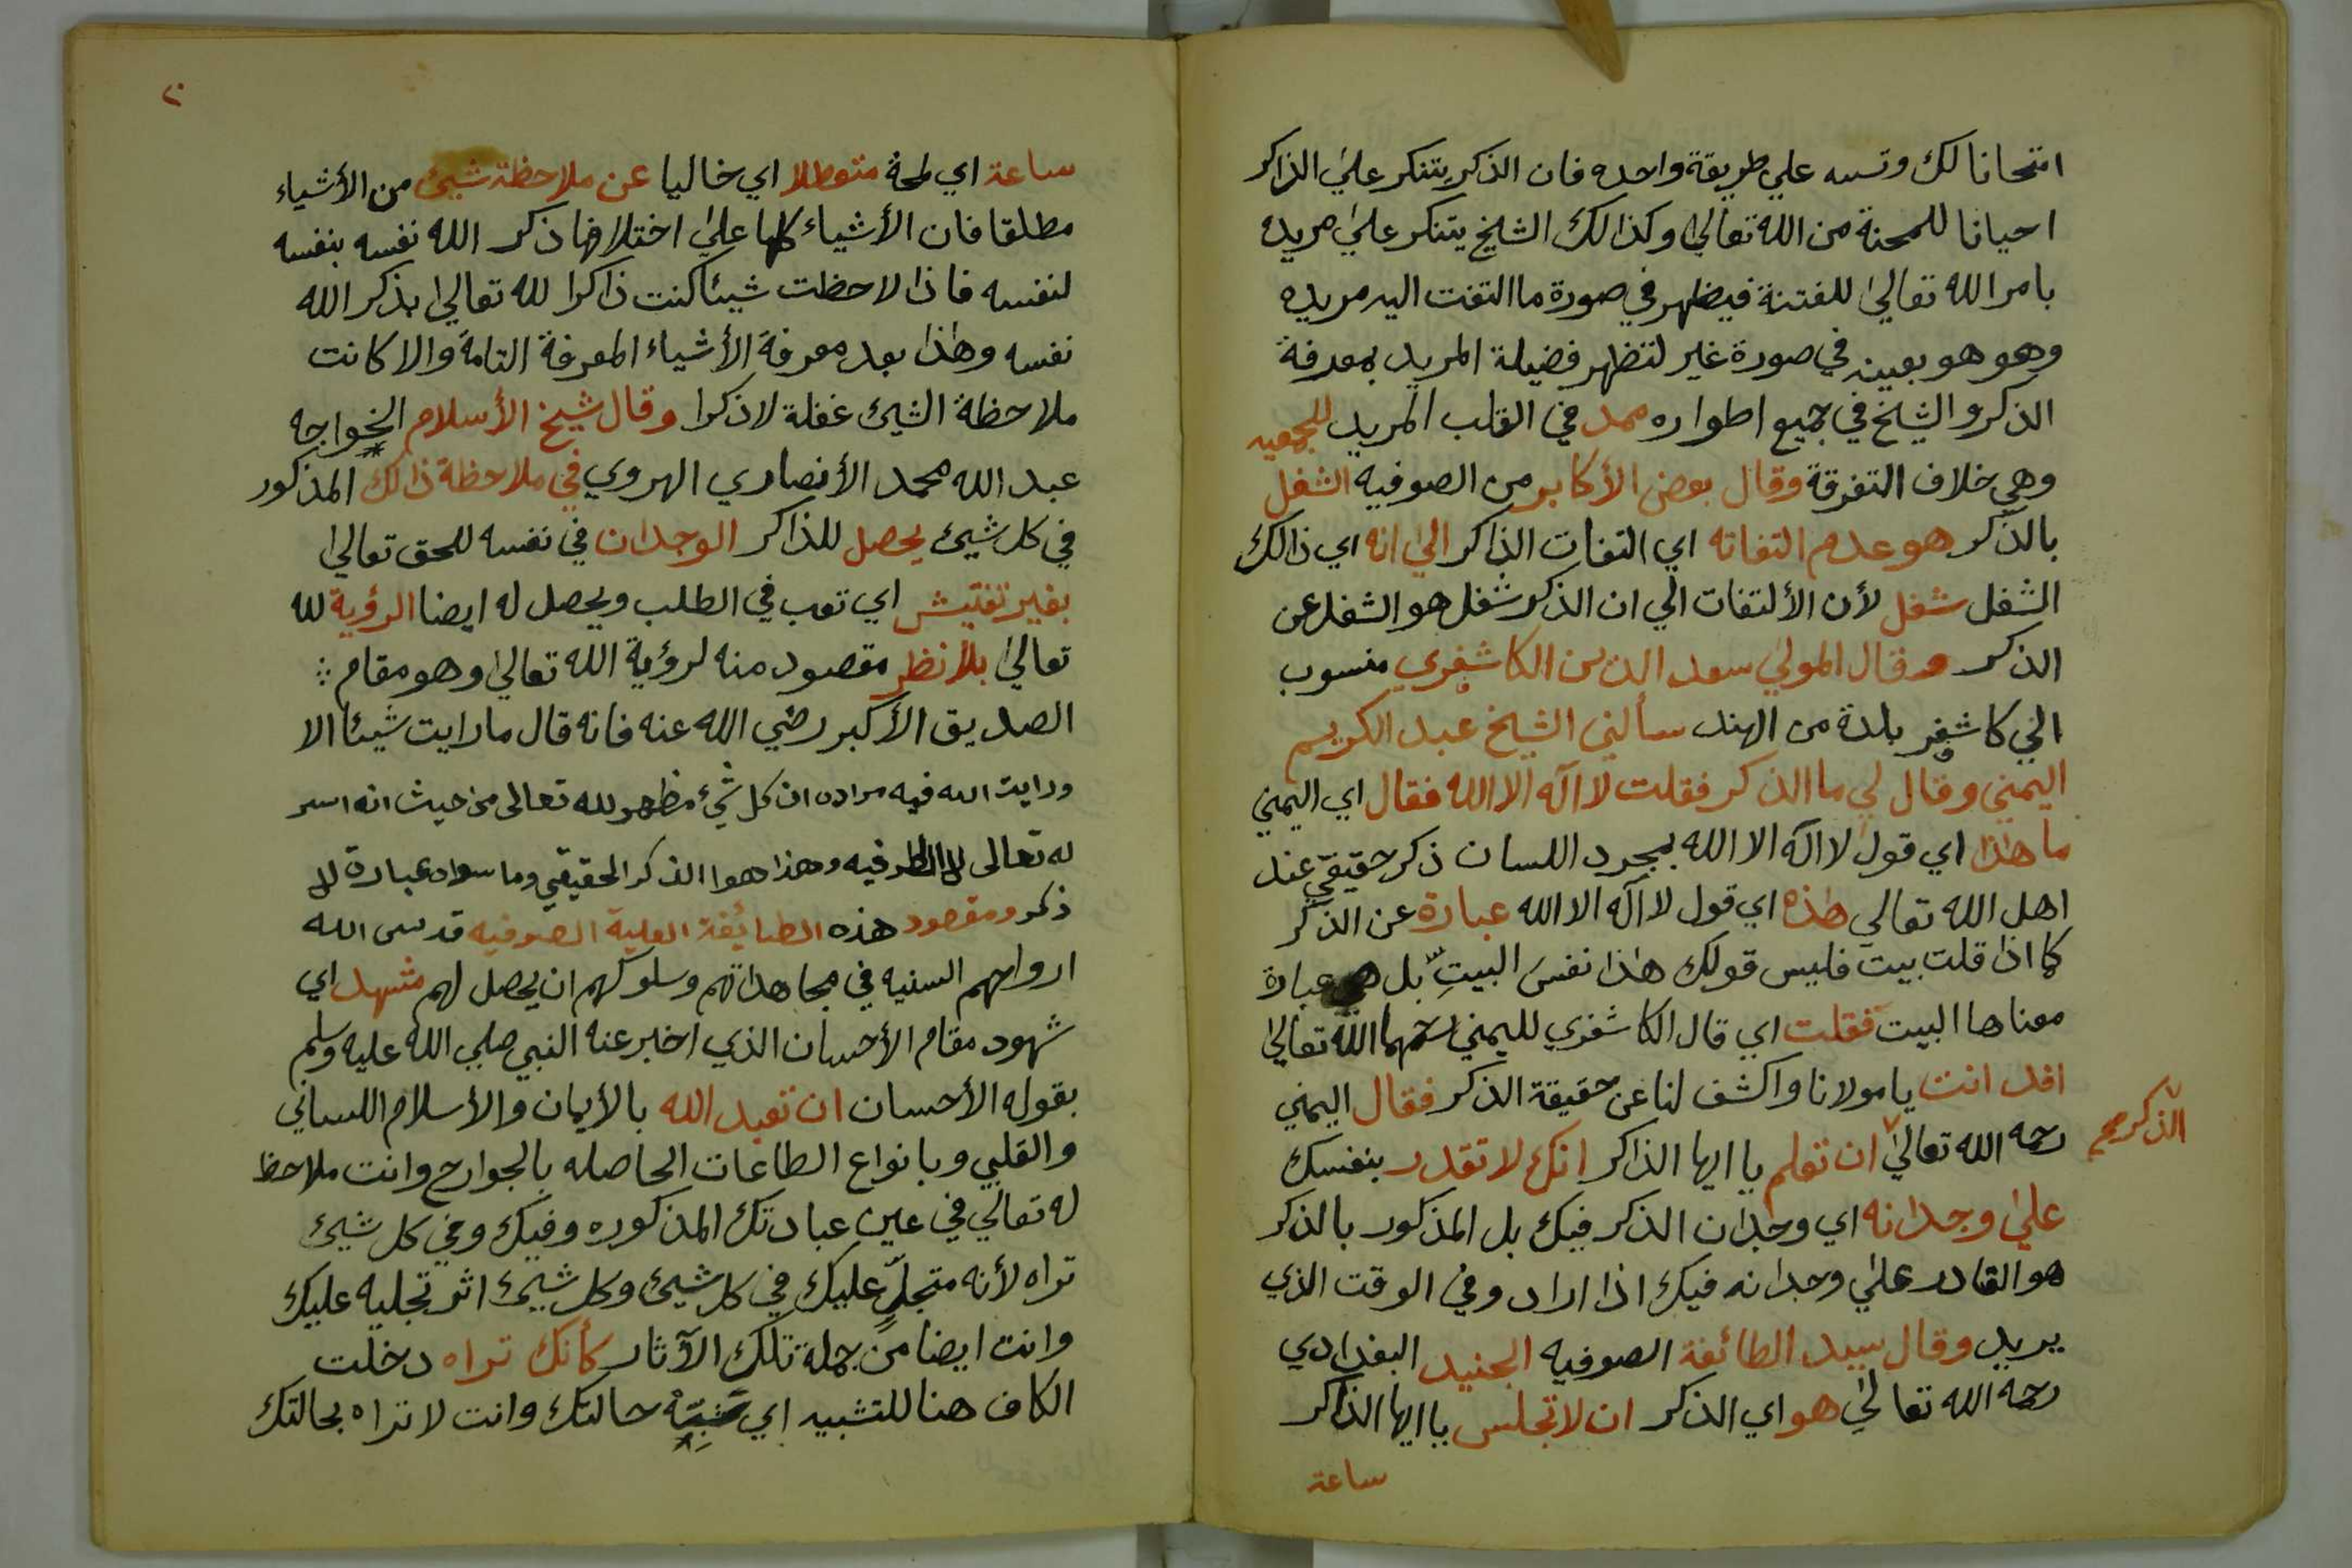 امتحانا لك وتسه علي طريقة واحده فان الذكر يتنكر علي الذاكر
احيانا للمحنة من الله تعالي وكذالك الشيخ يتنكر علي مريده
بامر الله تعالي للفتنة فيظهر في صورة ما التفت اليه مريده
وهو هو بعينه في صورة غير لتظهر فضيلة المريد بمعرفة
الذكر والشيخ في جميع اطواره ممد في القلب المريد للجمعيه
وهي خلاف التفرقة وقال بعض الأكابر من الصوفيه الشغل
بالذكر هو عدم التفاته اي التفات الذاكر الي انه اي ذالك
الشغل شغل لأن الألتفات الي ان الذكر شغل هو الشغل عن
الذكر وقال المولي سعد الدين الكاشغري منسوب
الي كاشغر بلدة من الهند سألني الشيخ عبد الكريم
اليمني وقال لي ما الذكر فقلت لا اله الا الله فقال اي اليمني
ما هذا اي قول لا اله الا الله بمجرد اللسان ذكر حقيقي عند
اهل الله تعالي هذه اي قول لا اله الا الله عبارة عن الذكر
كما اذا قلت بيت فليس قولك هذا نفس البيت بل هي عبارة
معناها البيت فقلت اي قال الكاشغري لليمني رحمهما الله تعالي
افد انت يا مولانا واكشف لنا عن حقيقة الذكر فقال اليمني
رحمه الله تعالي ان تعلم يا ايها الذاكر انك لا تقدر بنفسك
الذكر صح
علي وجدانه اي وجدان الذكر فيك بل المذكور بالذكر
هو القادر علي وجدانه فيك اذا اراد وفي الوقت الذي
يريد وقال سيد الطائفة الصوفيه الجنيد البغدادي
رحمه الله تعالي هو اي الذكر ان لا تجلس يا ايها الذاكر
ساعة
٢٠
ساعة اي لمحة متعطلا اي خاليا عن ملاحظة شيئ من الأشياء
مطلقا فان الأشياء كلها علي اختلافها ذكر الله نفسه بنفسه
لنفسه فاذا لاحظت شيئا كنت ذاكرا لله تعالي بذكر الله
نفسه وهذا بعد معرفة الأشياء المعرفة التامة والا كانت
ملاحظة الشيئ غفلة لا ذكرا وقال شيخ الأسلام الخواجه
عبد الله محمد الأنصاري الهروي في ملاحظة ذالك المذكور
في كل شيئ يحصل للذاكر الوجدان في نفسه للحق تعالي
بغير تفتيش اي تعب في الطلب ويحصل له ايضا الرؤية لله
تعالي بلا نظر مقصود منه لرؤية الله تعالي وهو مقام
الصديق الأكبر رضي الله عنه فانه قال ما رايت شيئا الا
ورايت الله فيه مراده ان كل شيء مظهر لله تعالى من حيث انه اسر
له تعالى فيه وهذا هوا الذكر الحقيقي وما سواه عبارة لا
ذكر ومقصود هذه الطائيفة العلية الصوفيه قدس الله
ارواحهم السنيه في مجاهداتهم وسلوكهم ان يحصل لهم مشهد اي
شهود مقام الأحسان الذي اخبر عنه النبي صلي الله عليه وسلم
بقوله الأحسان ان تعبد الله بالأيمان والأسلام اللساني
والقلبي وبانواع الطاعات الحاصله بالجوارح وانت ملاحظ
له تعالي في عين عبادتك المذكوره وفيك وفي كل شيئ
تراه لأنه متجلٍّ عليك في كل شيئ وكل شيئ اثر تجليه عليك
وانت ايضا من جملة تلك الآثار كأنك تراه دخلت
الكاف هنا للتشبيه اي حالتك وانت لا تراه بحالتك